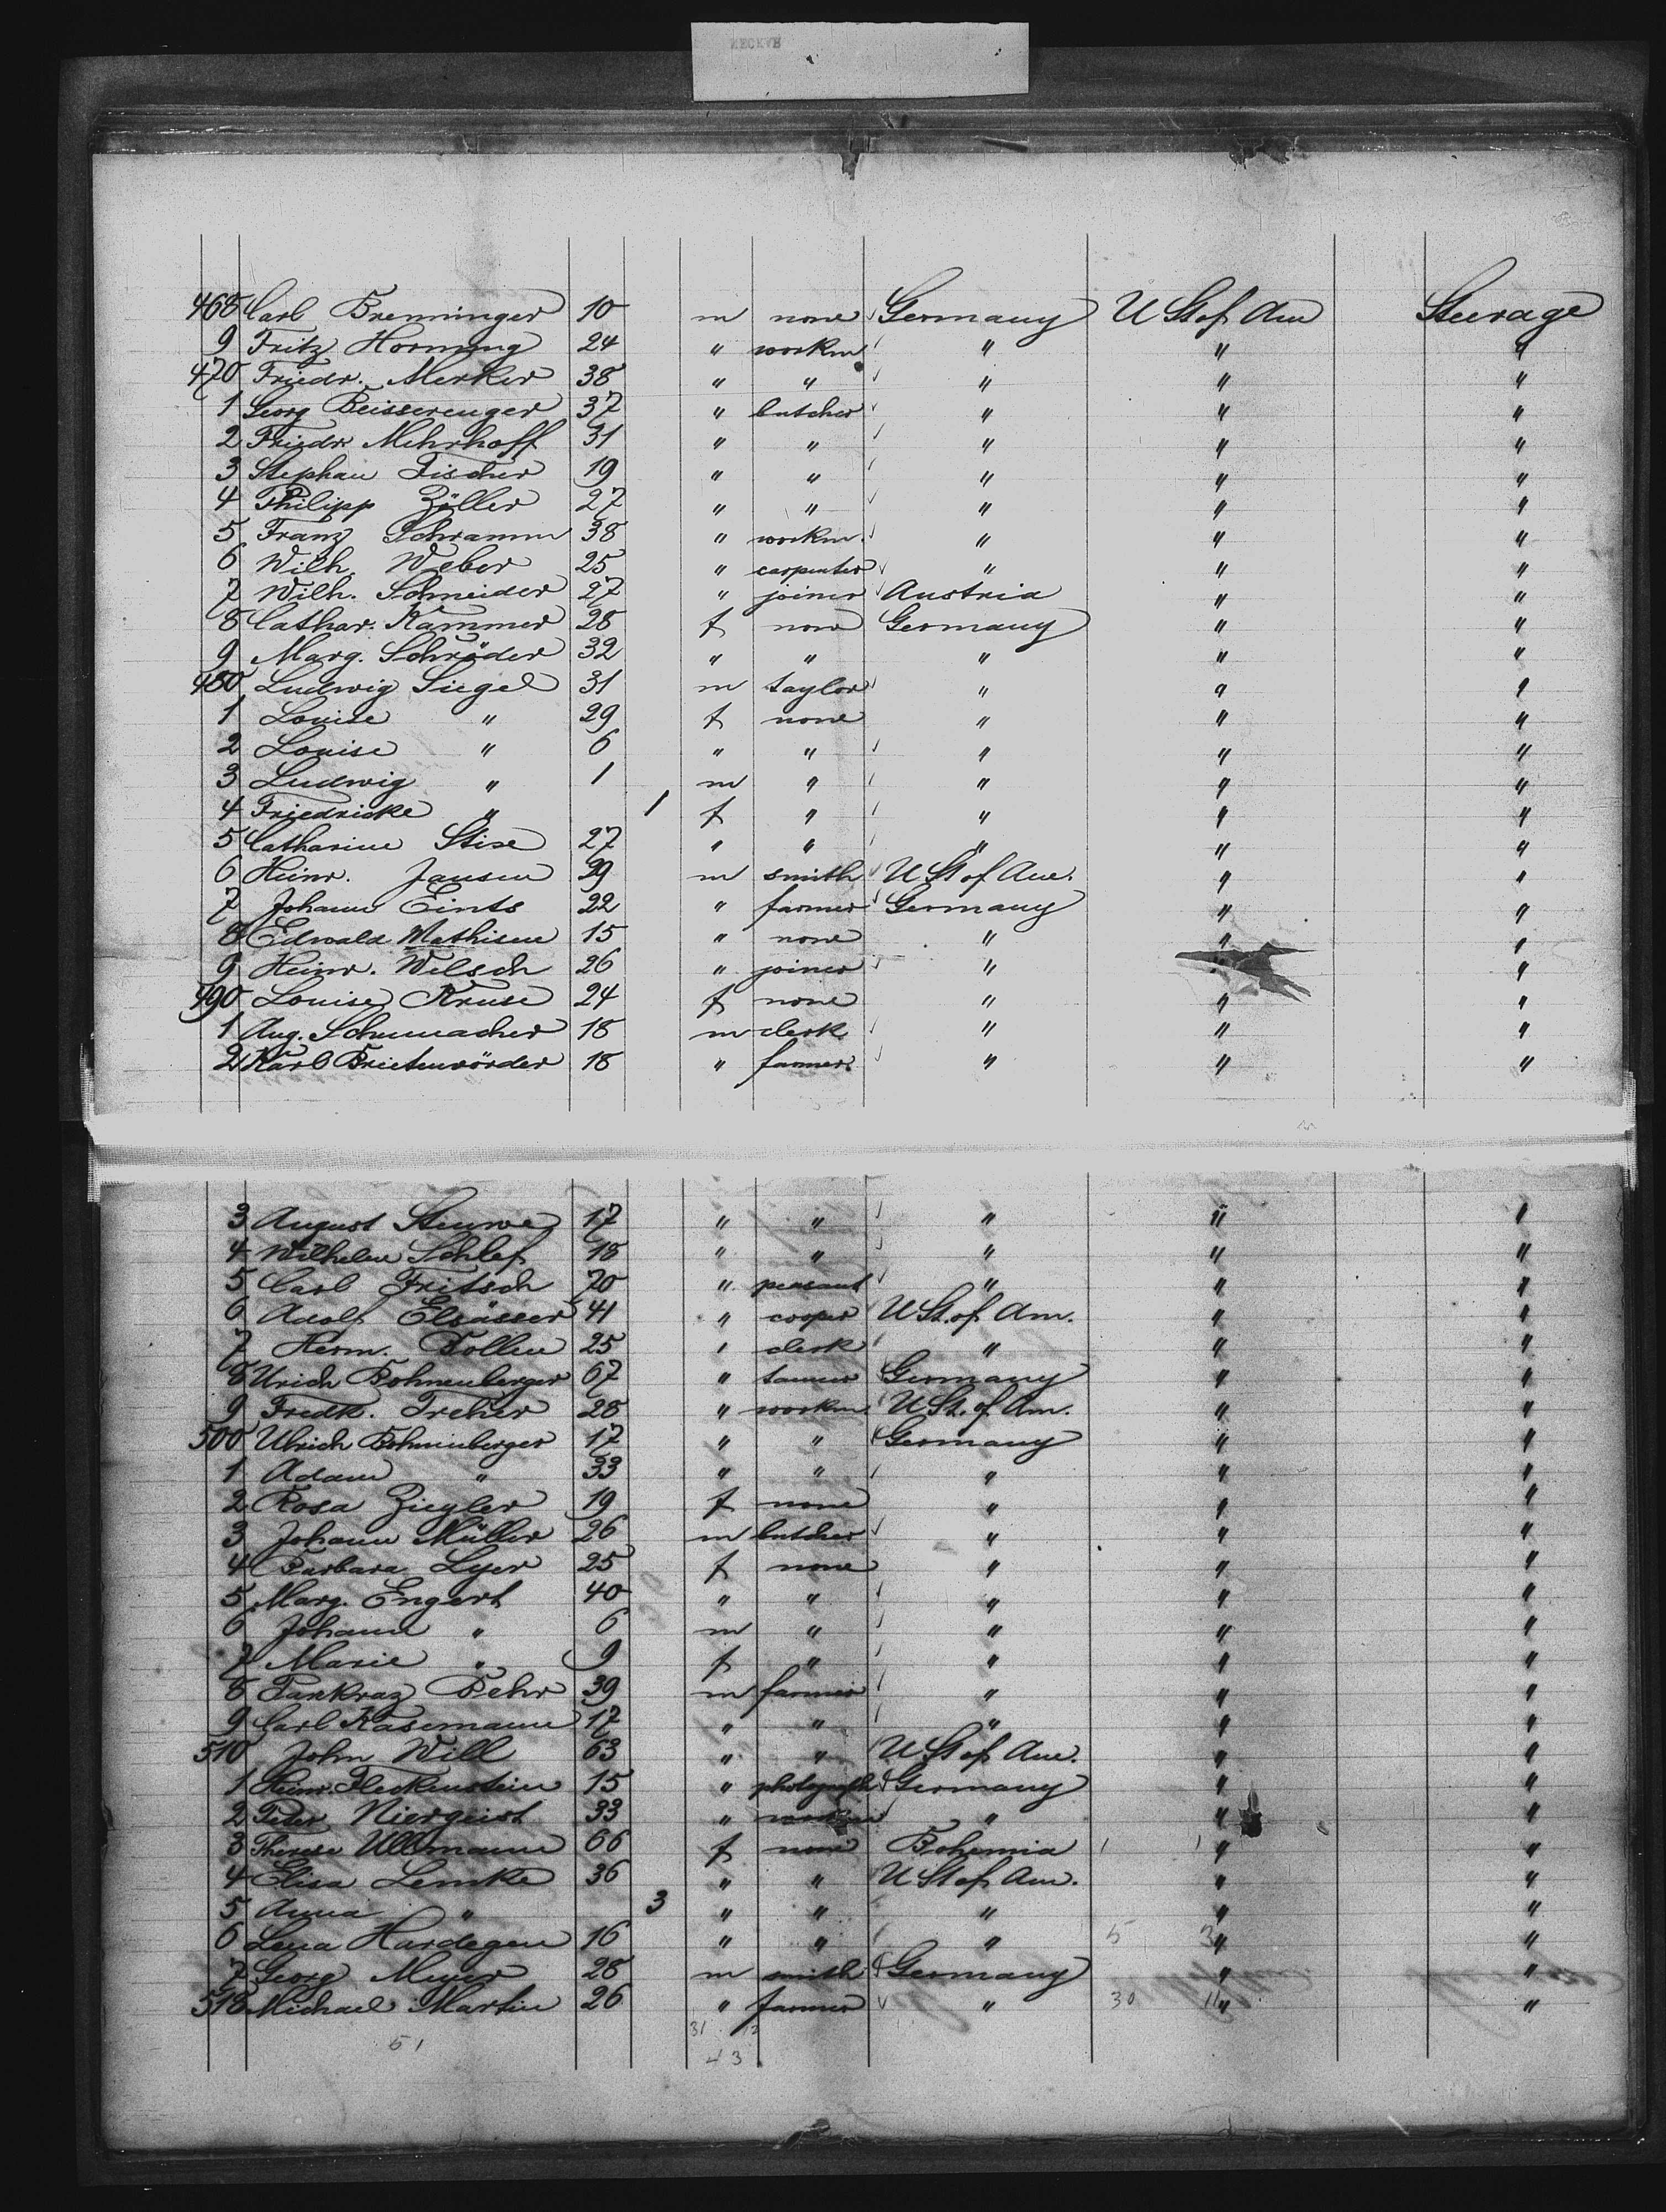 468 Carl Brenninger 10 m none Germany U St of Am Steerage
9 Fritz Hornung 24 " workm " " "
470 Friedr. Merker 38 " " " " "
1 Georg Beisserenger 37 " butcher " " "
2 Friedr Mehrhoff 31 " " " " "
3 Stephan Fischer 19 " " " " "
4 Philipp Zöller 27 " " " " "
5 Franz Schramm 38 " workm. " " "
6 Wilh. Weber 25 " carpenter " " "
7 Wilh. Schneider 27 " joiner Austria " "
8 Cathar. Kammer 28 f none Germany " "
9 Marg. Schröder 32 " " " " "
480 Ludwig Siegel 31 m taylor " " "
1 Louise " 29 f none " " "
2 Louise " 6 " " " " "
3 Ludwig " 1 m " " " "
4 Friedricke " 1 f " " " "
5 Catharine Stise 27 " " " " "
6 Heinr. Jansen 29 m smith U St of Am. " "
7 Johann Eints 22 " farmer Germany " "
8 Edwald Mathisen 15 " none " " "
9 Heinr. Welsch 26 " joiner " " "
490 Louise Kruse 24 f none " " "
1 Aug. Schumacher 18 m clerk " " "
2 Karl Brietenvörder 18 " farmer " " "
3 August Stuwe 17 " " " " "
4 Wilhelm Schlef 18 " " " " "
5 Carl Fritsch 70 " peasant " " "
6 Adolf Elsässer 41 " cooper U St. of Am. " "
7 Herm. Bollen 25 " clerk " " "
8 Urich Bohnenberger 67 " tanner Germany " "
9 Fredk. Treher 28 " workm. U St. of Am. " "
500 Ulrich Bohnenberger 17 " " Germany " "
1 Adam " 33 " " " " "
2 Rosa Ziegler 19 f none " " "
3 Johann Müller 26 m butcher " " "
4 Barbara Lyer 25 f none " " "
5 Marg. Engert 40 " " " " "
6 Johann " 6 m " " " "
7 Marie " 9 f " " " "
8 Pankraz Behr 39 m farmer " " "
9 Carl Kasemann 17 " " " " "
510 John Will 63 " " U St of Am. " "
1 Heinr. Fleckenstein 15 " photograph Germany " "
2 Peter Niergeist 33 " workm " " "
3 Therese Ullmann 66 f none Bohemia 1 1 " "
4 Elisa Lemke 36 " " U St of Am. " "
5 Anna " 3 " " " " "
6 Lena Hardegen 16 " " " 5 3 " "
7 Georg Meyer 28 m smith Germany " "
518 Michael Martin 26 " farmer " 30 11 " "
31 12
51 43